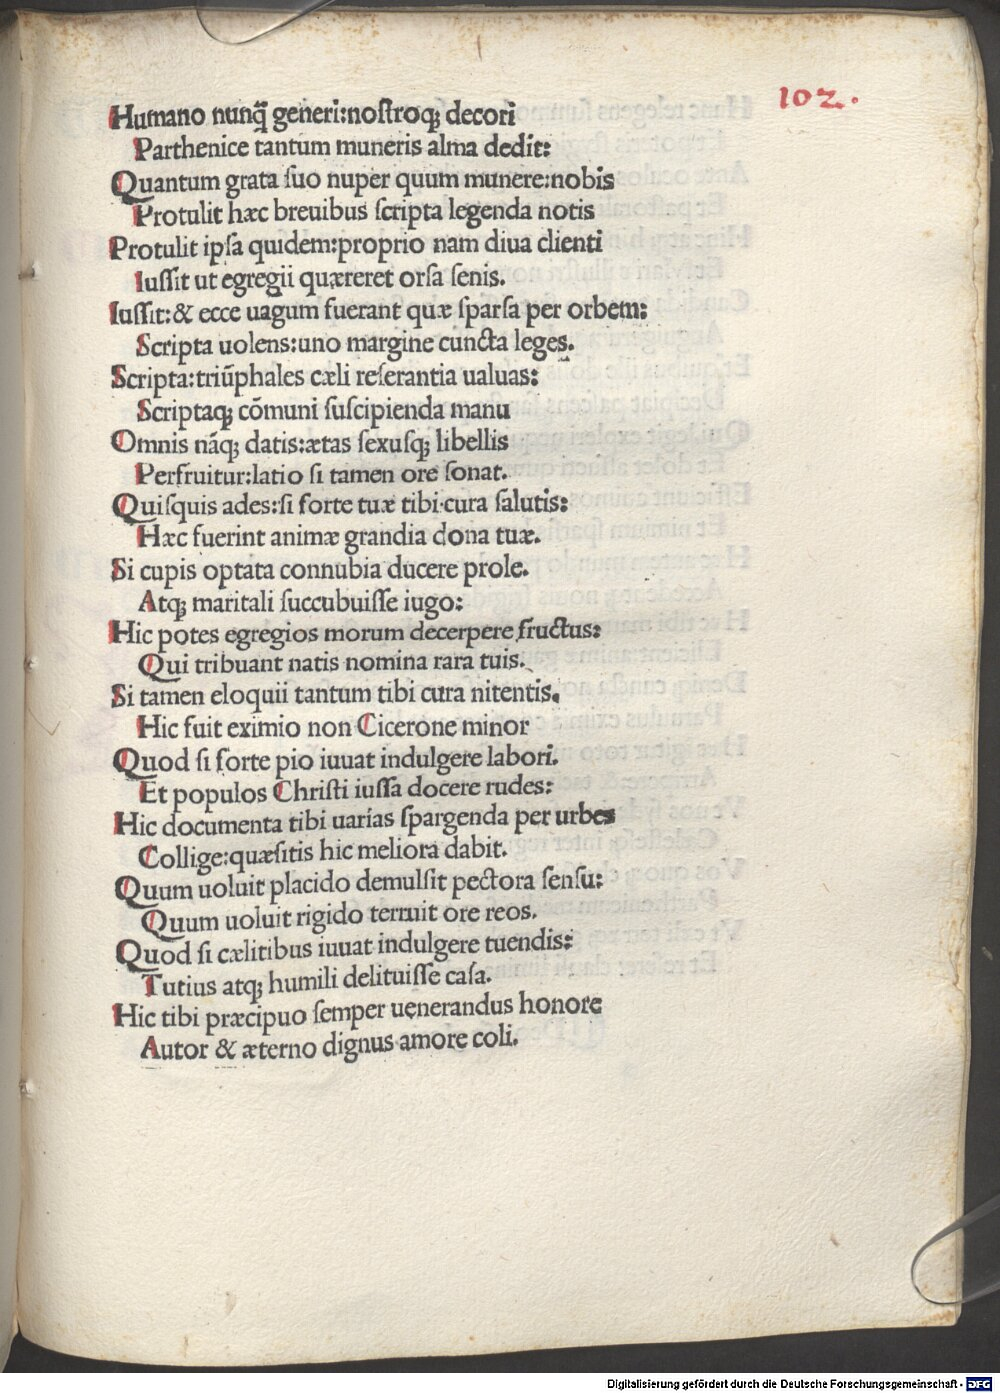 102.
Humano nunq̃ generi:noſtroq; decori
Parthenice tantum muneris alma dedit:
Quantum grata ſuo nuper quum munere:nobis
Protulit hæc breuibus ſcripta legenda notis
Protulit ipſa quidem:proprio nam diua clienti
Iuſſit ut egregii quæreret orſa ſenis.
Iuſſit:& ecce uagum fuerant quæ ſparſa per orbem:
Scripta uolens:uno margine cuncta leges.
Scripta:triũphales cæli reſerantia ualuas:
Scriptaq; cõmuni ſuſcipienda manu
Omnis nãq; datis:ætas ſexuſq; libellis
Perfruitur:latio ſi tamen ore ſonat.
Quiſquis ades:ſi forte tuæ tibi·cura ſalutis:
Hæc fuerint animæ grandia dona tuæ.
Si cupis optata connubia ducere prole.
Atq; maritali ſuccubuiſſe iugo:
Hic potes egregios morum decerpere fructus:
Qui tribuant natis nomina rara tuis.
Si tamen eloquii tantum tibi cura nitentis.
Hic fuit eximio non Cicerone minor
Quod ſi forte pio iuuat indulgere labori.
Et populos Chriſti iuſſa docere rudes:
Hic documenta tibi uarias ſpargenda per urbes
Collige:quæſitis hic meliora dabit.
Quum uoluit placido demulſit pectora ſenſu:
Quum uoluit rigido terruit ore reos.
Quod ſi cælitibus iuuat indulgere tuendis:
Tutius atq; humili delituiſſe caſa.
Hic tibi præcipuo ſemper uenerandus honore
Autor & æterno dignus amore coli.
Digitalisierung gefördert durch die Deutsche Forschungsgemeinschaft - DFG